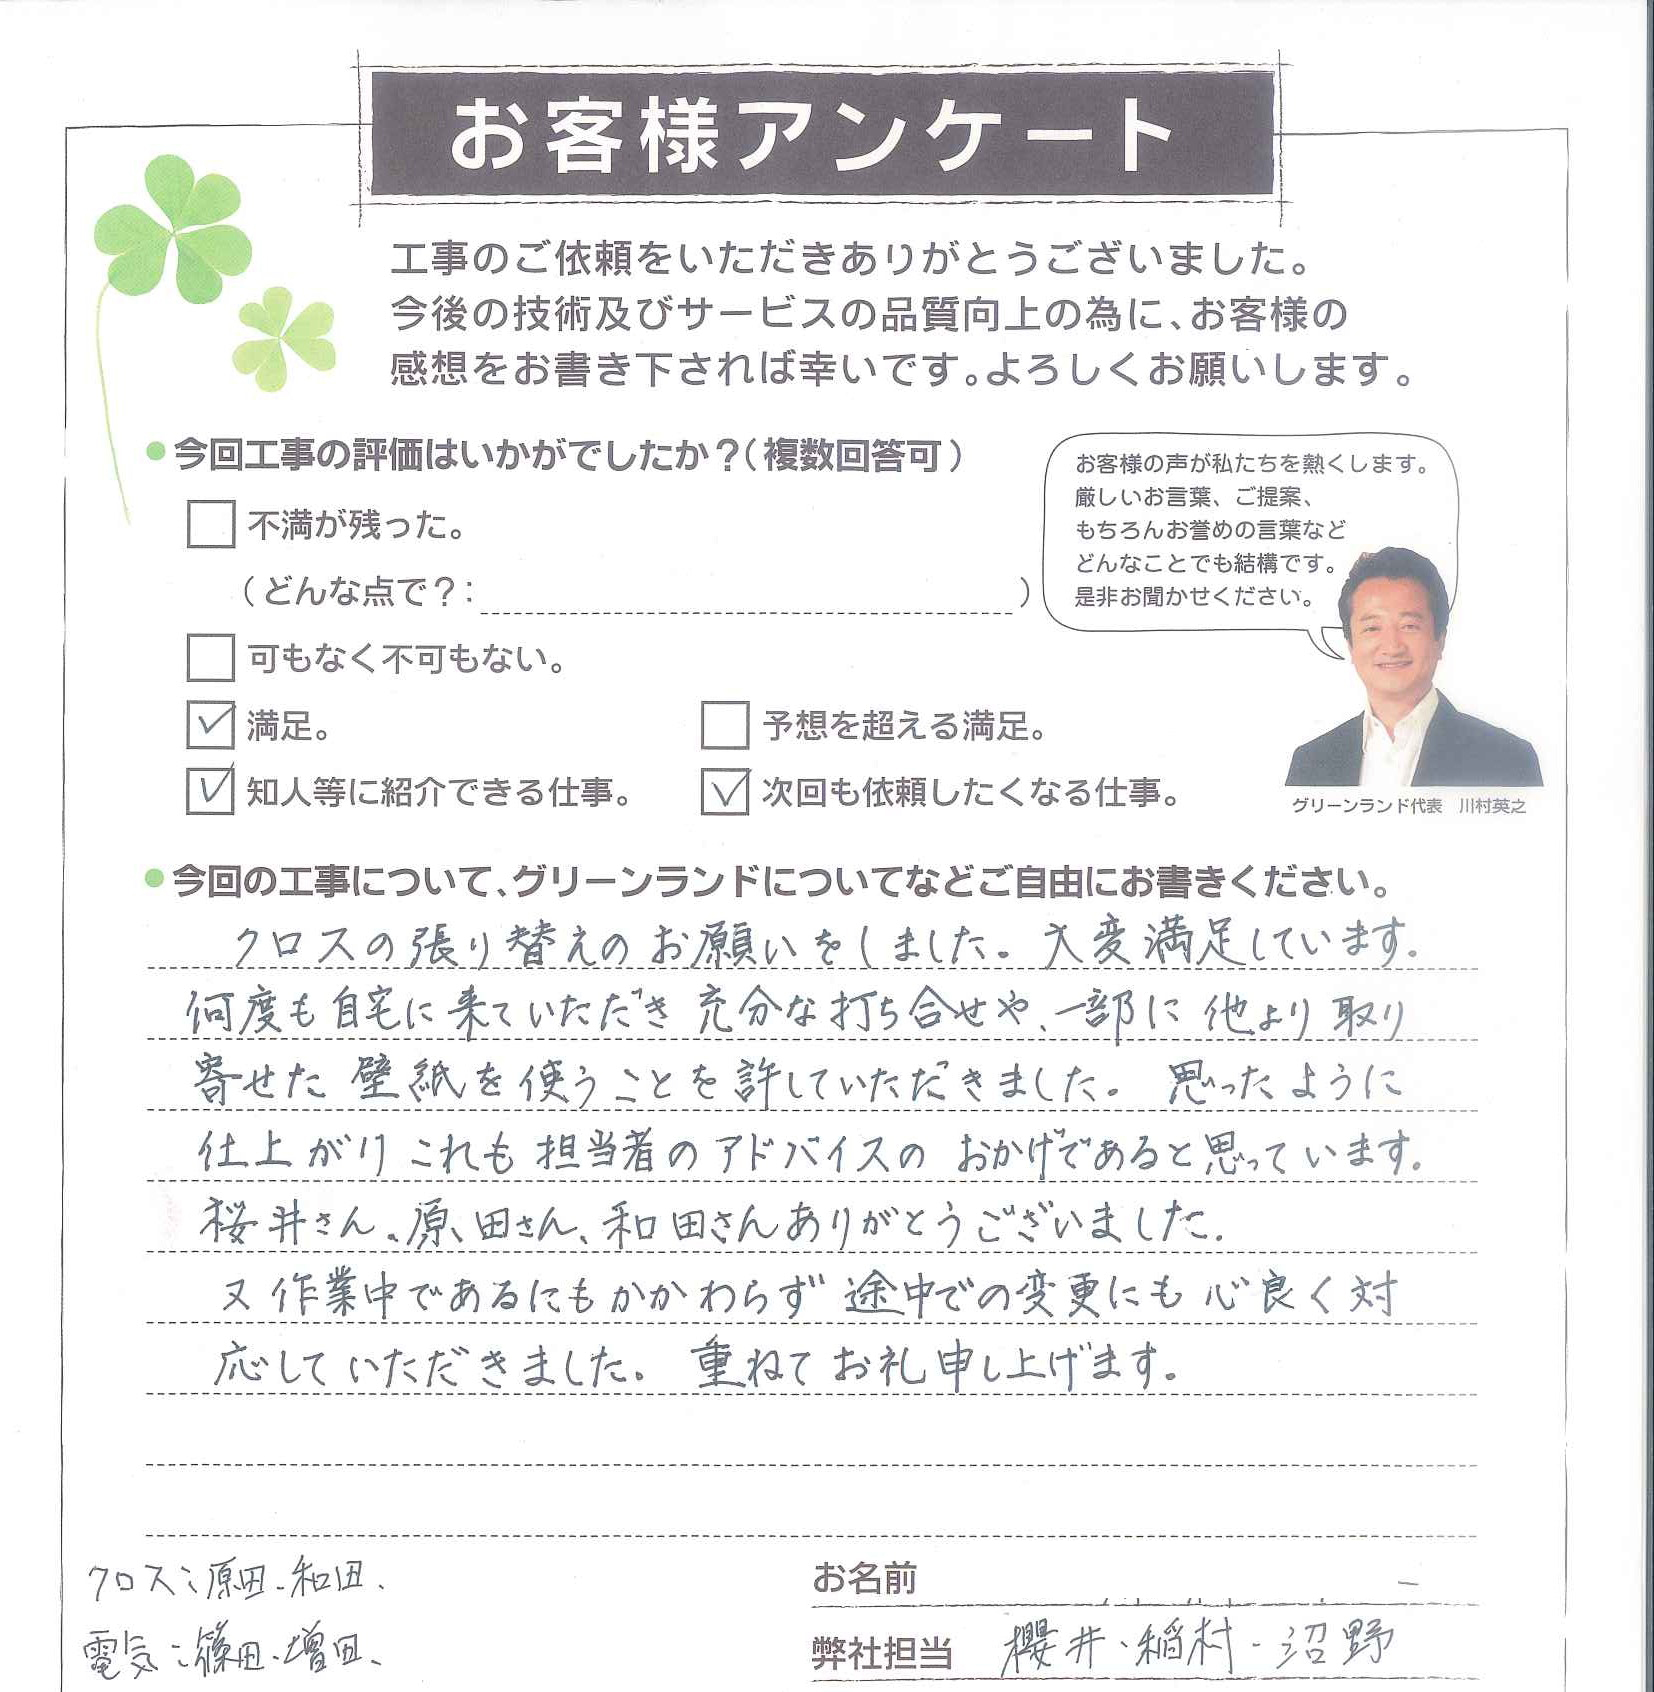 お客様アンケート
工事のご依頼をいただきありがとうございました。
今後の技術及びサービスの品質向上の為に、お客様の
感想をお書き下されば幸いです。よろしくお願いします。
●今回工事の評価はいかがでしたか？（複数回答可）
不満が残った。
（どんな点で？：　）
可もなく不可もない。
満足。
予想を超える満足。
知人等に紹介できる仕事。
次回も依頼したくなる仕事。
お客様の声が私たちを熱くします。
厳しいお言葉、ご提案、
もちろんお誉めの言葉など
どんなことでも結構です。
是非お聞かせください。
グリーンランド代表　川村英之
●今回の工事について、グリーンランドについてなどご自由にお書きください。
クロスの張り替えのお願いをしました。大変満足しています。
何度も自宅に来ていただき充分な打ち合せや、一部に他より取り
寄せた壁紙を使うことを許していただきました。思ったように
仕上がりこれも担当者のアドバイスのおかげであると思っています。
桜井さん、原、田さん、和田さんありがとうございました。
又作業中であるにもかかわらず途中での変更にも心良く対
応していただきました。重ねてお礼申し上げます。
クロス：原田、和田、
電気：篠田、増田、
お名前
弊社担当　櫻井、稲村、沼野